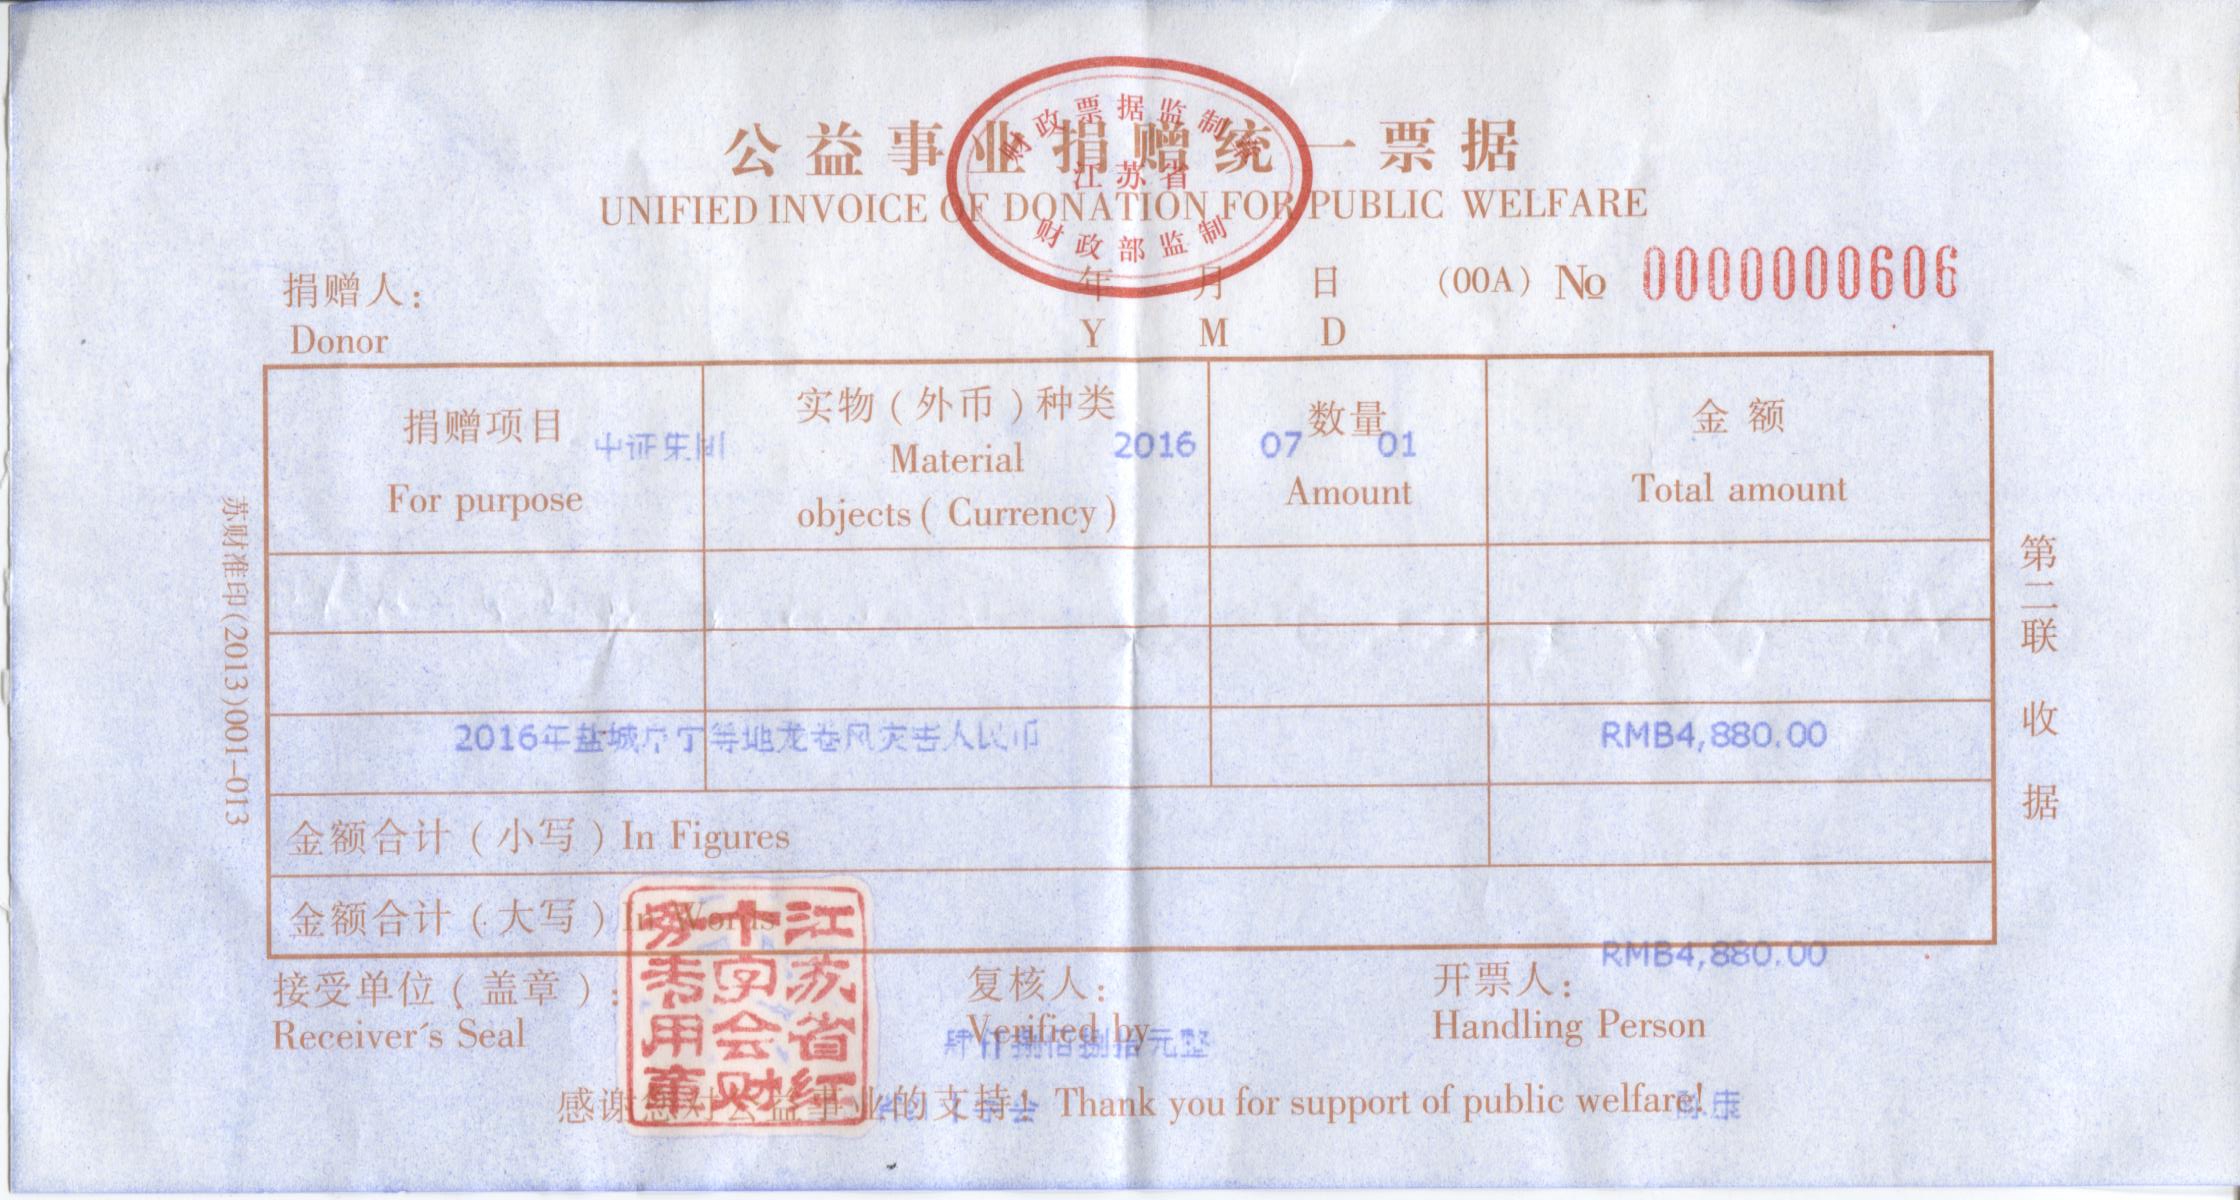 公益事业捐赠统一票据
财政票据监制章
江苏省
财政部监制
UNIFIED INVOICE OF DONATION FOR PUBLIC WELFARE
捐赠人： 年 月 日 (00A) № 0000000606
Donor Y M D
捐赠项目 实物(外币)种类 数量 金额
2016 07 01
For purpose Material objects(Currency) Amount Total amount
2016年盐城阜宁等地龙卷风灾害 人民币 RMB4,880.00
金额合计(小写) In Figures
金额合计(大写) In Words
RMB4,880.00
接受单位(盖章)： 复核人： 开票人：
Receiver's Seal Verified by Handling Person
肆仟捌佰捌拾元整
江苏省红十字会财务专用章
感谢您对公益事业的支持！ Thank you for support of public welfare!
苏财准印(2013)001-013
第二联 收据